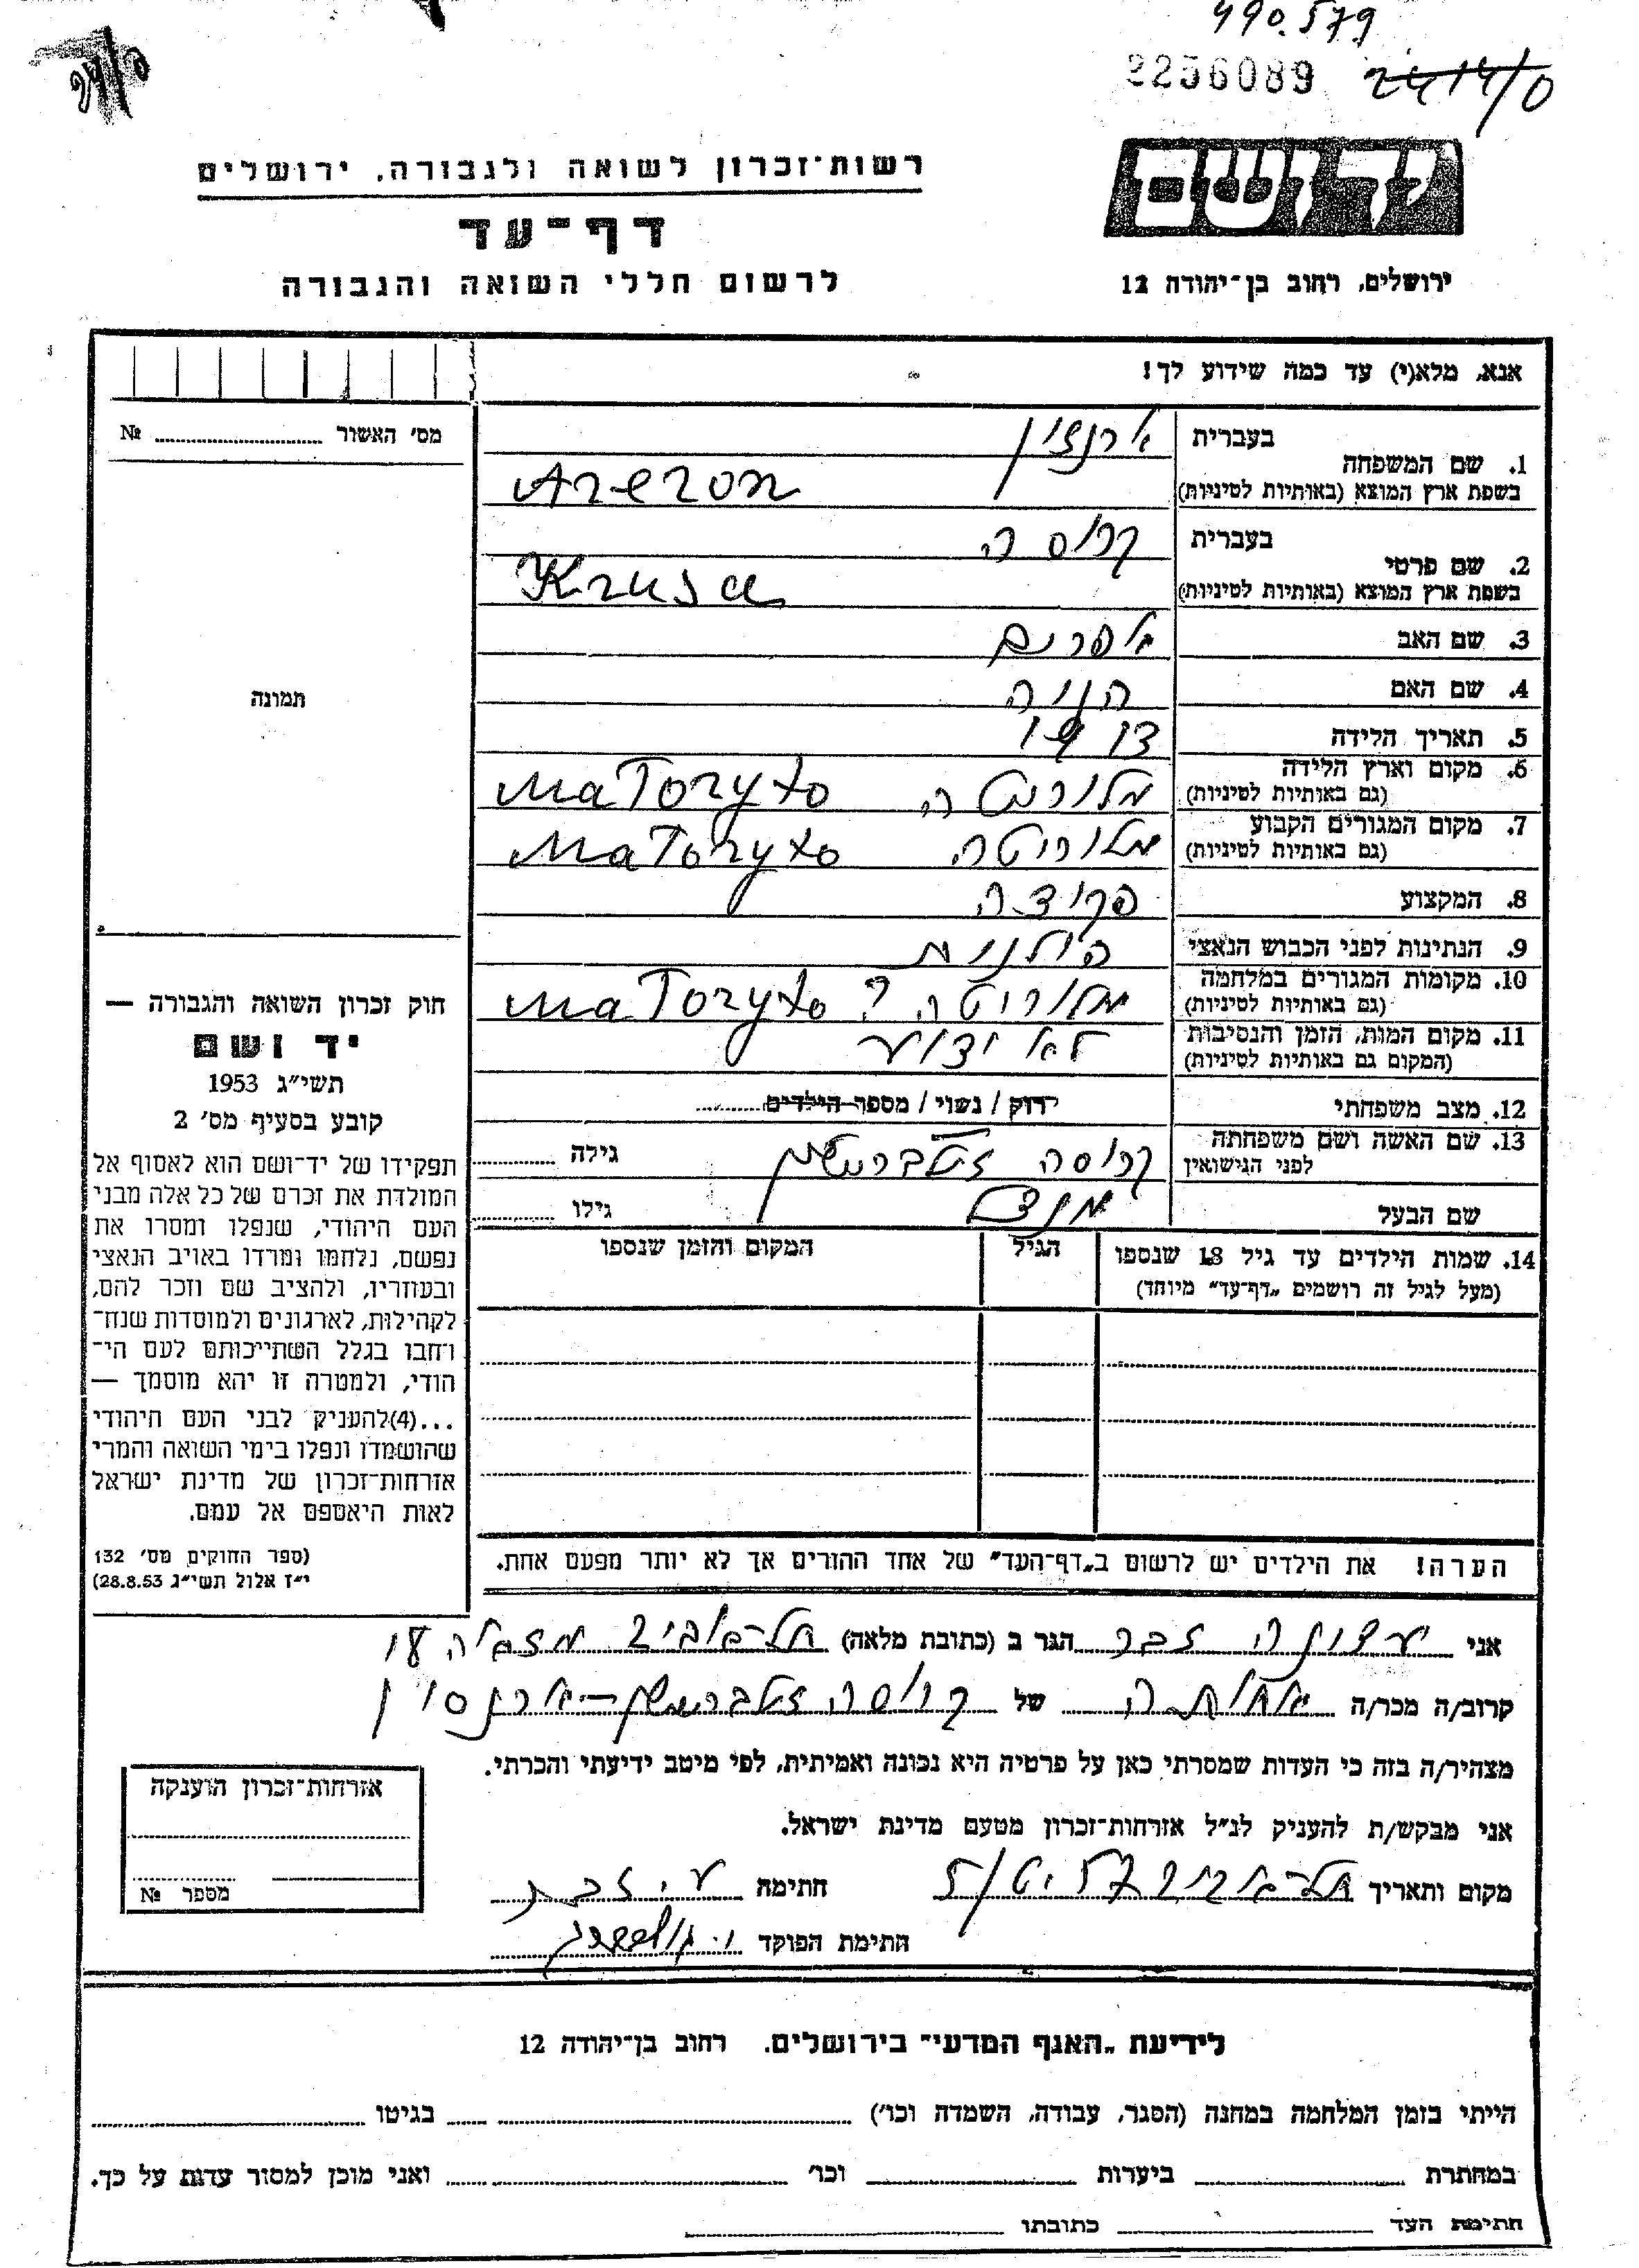 490.579
2256089 2414/0
יד ושם
רשות־זכרון לשואה ולגבורה, ירושלים
דף־עד
לרשום חללי השואה והגבורה
ירושלים, רחוב בן־יהודה 12
אנא, מלא(י) עד כמה שידוע לך!
מס׳ האשור № 
1. שם המשפחה
בעברית
בשפת ארץ המוצא (באותיות לטיניות) Arezon
2. שם פרטי
בעברית קרוסה
בשפת ארץ המוצא (באותיות לטיניות) Krusa
3. שם האב אפרים
4. שם האם הניה
5. תאריך הלידה
6. מקום וארץ הלידה
(גם באותיות לטיניות) מלוריטה MaToryto
7. מקום המגורים הקבוע
(גם באותיות לטיניות) מלוריטה MaToryto
8. המקצוע פקידה
9. הנתינות לפני הכבוש הנאצי פולנית
10. מקומות המגורים במלחמה
(גם באותיות לטיניות) מלוריטה ? MaToryto
11. מקום המות, הזמן והנסיבות
(המקום גם באותיות לטיניות) לא ידוע
12. מצב משפחתי רוק / נשוי / מספר הילדים
13. שם האשה ושם משפחתה
לפני הנישואין קרוסה זילברשטין גילה
שם הבעל מנדל גילו
14. שמות הילדים עד גיל 18 שנספו הגיל המקום והזמן שנספו
(מעל לגיל זה רושמים „דף־עד״ מיוחד)
הערה! את הילדים יש לרשום ב„דף־העד״ של אחד ההורים אך לא יותר מפעם אחת.
תמונה
חוק זכרון השואה והגבורה —
יד ושם
תשי״ג 1953
קובע בסעיף מס׳ 2
תפקידו של יד־ושם הוא לאסוף אל
המולדת את זכרם של כל אלה מבני
העם היהודי, שנפלו ומסרו את
נפשם, נלחמו ומרדו באויב הנאצי
ובעוזריו, ולהציב שם וזכר להם,
לקהילות, לארגונים ולמוסדות שנח־
רבו בגלל השתייכותם לעם הי־
הודי, ולמטרה זו יהא מוסמך —
...(4)להעניק לבני העם היהודי
שהושמדו ונפלו בימי השואה והמרי
אזרחות־זכרון של מדינת ישראל
לאות היאספם אל עמם.
(ספר החוקים מס׳ 132
י״ז אלול תשי״ג 28.8.53)
אני עדינה זבר הגר ב (כתובת מלאה) תל־אביב
קרוב/ה מכר/ה אחותה של קרוסה זילברשטין־ארנסון
מצהיר/ה בזה כי העדות שמסרתי כאן על פרטיה היא נכונה ואמיתית, לפי מיטב ידיעתי והכרתי.
אני מבקש/ת להעניק לנ״ל אזרחות־זכרון מטעם מדינת ישראל.
מקום ותאריך תל־אביב חתימה
חתימת הפוקד
אזרחות־זכרון הוענקה
מספר №
לידיעת „האגף המדעי״ בירושלים. רחוב בן־יהודה 12
הייתי בזמן המלחמה במחנה (הסגר, עבודה, השמדה וכו׳) בגיטו
במחתרת ביערות וכו׳ ואני מוכן למסור עדות על כך.
חתימת העד כתובתו